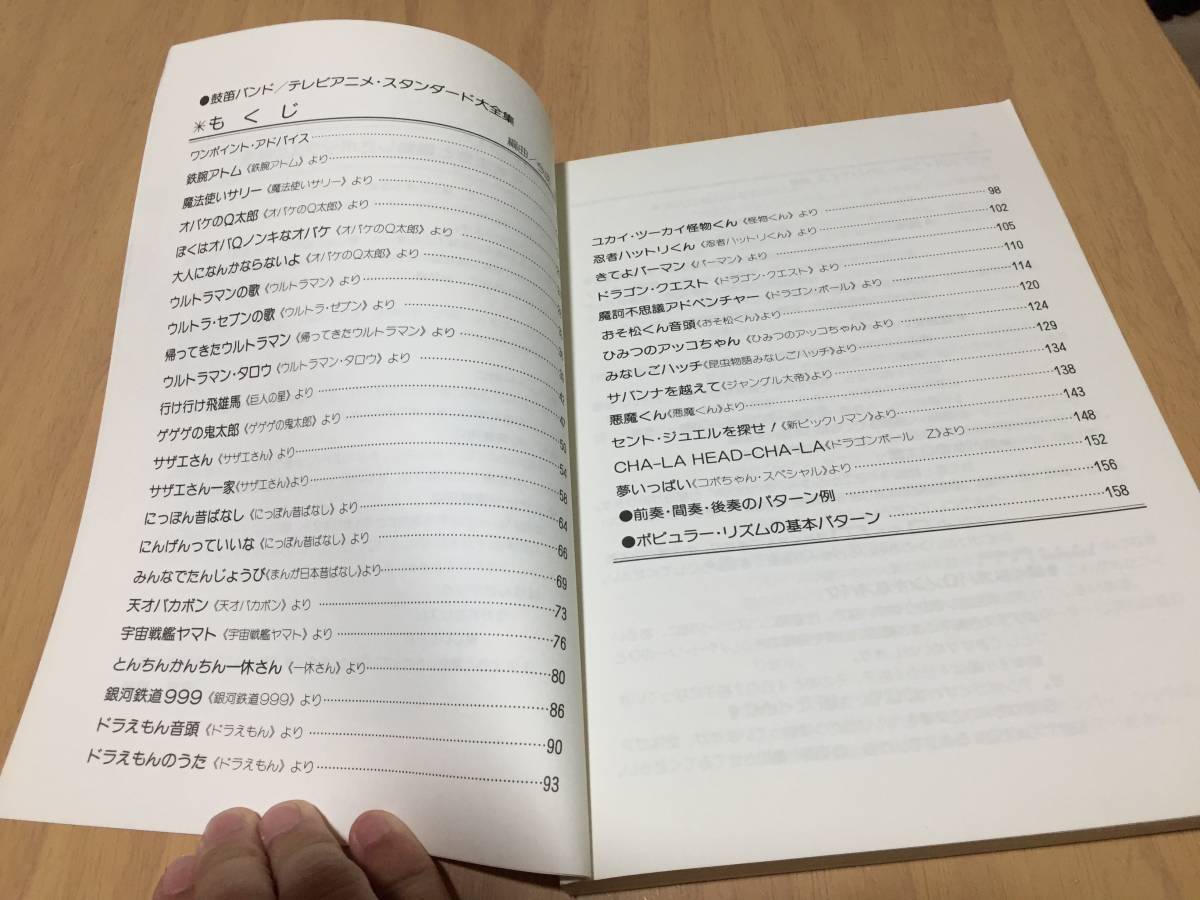 ●鼓笛バンド／テレビアニメ・スタンダード大全集
＊もくじ
編曲／
ワンポイント・アドバイス
鉄腕アトム《鉄腕アトム》より
魔法使いサリー《魔法使いサリー》より
オバケのQ太郎《オバケのQ太郎》より
ぼくはオバQノンキなオバケ《オバケのQ太郎》より
大人になんかならないよ《オバケのQ太郎》より
ウルトラマンの歌《ウルトラマン》より
ウルトラ・セブンの歌《ウルトラ・セブン》より
帰ってきたウルトラマン《帰ってきたウルトラマン》より
ウルトラマン・タロウ《ウルトラマン・タロウ》より
行け行け飛雄馬《巨人の星》より 42
ゲゲゲの鬼太郎《ゲゲゲの鬼太郎》より 47
サザエさん《サザエさん》より 50
サザエさん一家《サザエさん》より 54
にっぽん昔ばなし《にっぽん昔ばなし》より 58
にんげんっていいな《にっぽん昔ばなし》より 64
みんなでたんじょうび《まんが日本昔ばなし》より 66
天才バカボン《天才バカボン》より 69
宇宙戦艦ヤマト《宇宙戦艦ヤマト》より 73
とんちんかんちん一休さん《一休さん》より 76
銀河鉄道999《銀河鉄道999》より 80
ドラえもん音頭《ドラえもん》より 86
ドラえもんのうた《ドラえもん》より 90
93
ユカイ・ツーカイ怪物くん《怪物くん》より 98
忍者ハットリくん《忍者ハットリくん》より 102
きてよパーマン《パーマン》より 105
ドラゴン・クエスト《ドラゴン・クエスト》より 110
魔訶不思議アドベンチャー《ドラゴン・ボール》より 114
おそ松くん音頭《おそ松くん》より 120
ひみつのアッコちゃん《ひみつのアッコちゃん》より 124
みなしごハッチ《昆虫物語みなしごハッチ》より 129
サバンナを越えて《ジャングル大帝》より 134
悪魔くん《悪魔くん》より 138
セント・ジュエルを探せ！《新ビックリマン》より 143
CHA-LA HEAD-CHA-LA《ドラゴンボール Z》より 148
夢いっぱい《コボちゃん・スペシャル》より 152
●前奏・間奏・後奏のパターン例 156
●ポピュラー・リズムの基本パターン 158